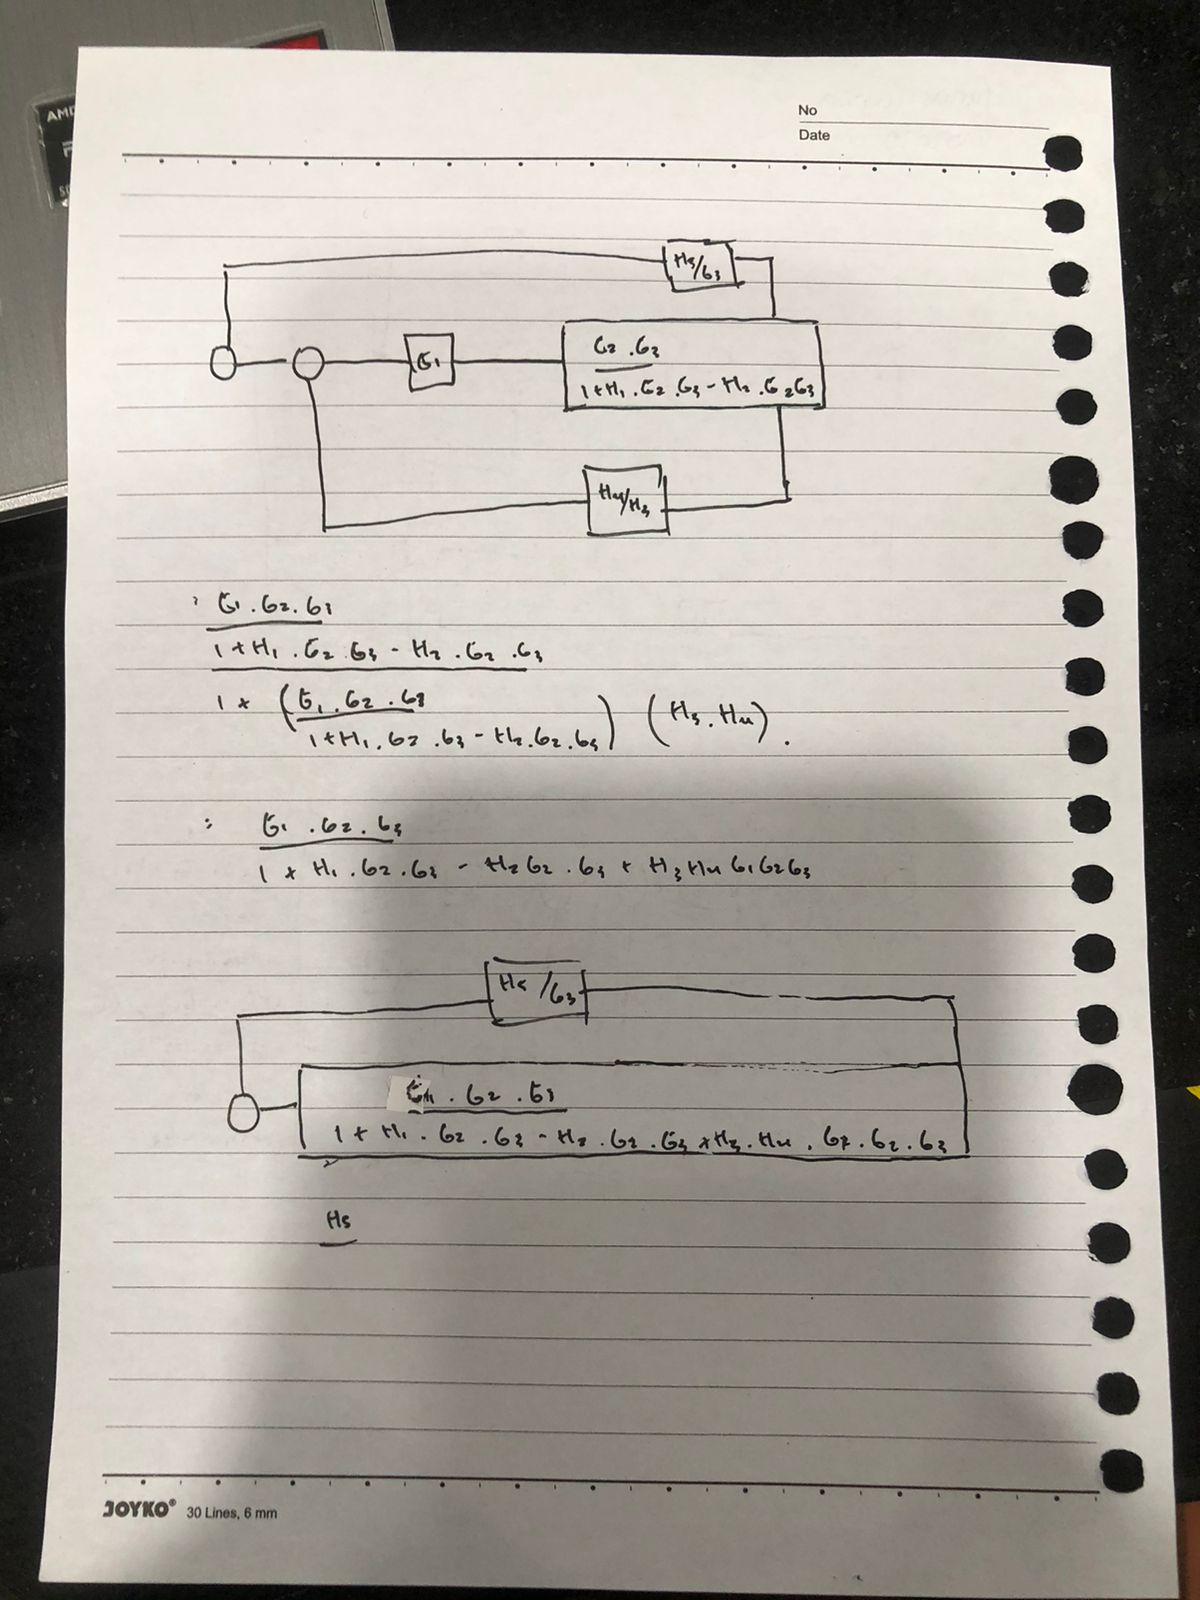 AMD
No
Date
H5/G3
G1
G2 . G3
1+H1 . G2 . G3 - H2 . G2G3
H4/H3
: G1 . G2 . G3
1+H1 . G2 G3 - H2 . G2 . G3
1 + (G1 . G2 . G3
1+H1 . G2 . G3 - H2 . G2 . G3) (H3 . H4) .
: G1 . G2 . G3
1 + H1 . G2 . G3 - H2 G2 . G3 + H3 H4 G1 G2 G3
H5 /G3
G1 . G2 . G3
1 + H1 . G2 . G3 - H2 . G2 . G3 + H3 . H4 . . G2 . G3
H5
JOYKO® 30 Lines, 6 mm